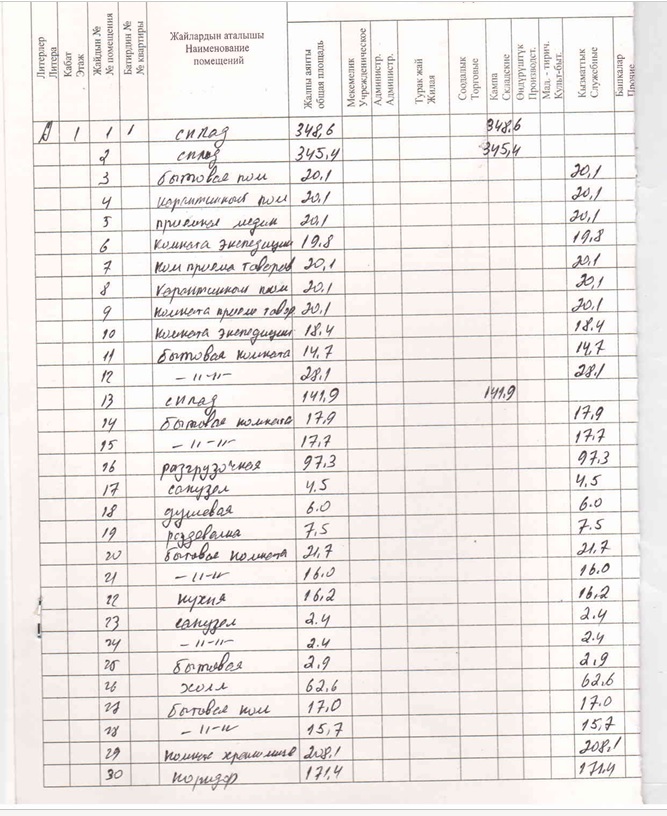 Литерлер Литера
Кабат Этаж
Жайдын № № помещения
Батирдин № № квартиры
Жайлардын аталышы Наименование помещений
Жалпы аянты общая площадь
Мекемелик Учрежденческое
Администр. Администр.
Турак жай Жилая
Соодалык Торговые
Кампа Складские
Өндүрүштүк Производст.
Мад. - тирич. Культ-быт.
Кызматтык Служебные
Башкалар Прочие
1 1 1 склад 348,6 348,6
2 склад 345,4 345,4
3 бытовая ком 20,1 20,1
4 карантинная ком 20,1 20,1
5 20,1 20,1
6 комната экспедиции 19.8 19,8
7 ком приема товаров 20,1 20,1
8 карантинная ком 20,1 20,1
9 комната прием товар 20,1 20,1
10 комната экспедиции 18.4 18.4
11 бытовая комната 14,7 14,7
12 –"–"– 28,1 28,1
13 склад 141,9 141,9
14 бытовая комната 17,9 17,9
15 –"–"– 17,7 17.7
16 разгрузочная 97,3 97.3
17 санузел 4.5 4.5
18 душевая 6.0 6.0
19 раздевалка 7,5 7.5
20 бытовая комната 21,7 21.7
21 –"–"– 16.0 16.0
22 кухня 16,2 16,2
23 санузел 2.4 2.4
24 –"–"– 2.4 2.4
25 бытовая 2,9 2,9
26 холл 62.6 62.6
27 бытовая ком 17,0 17.0
28 –"–"– 15,7 15,7
29 208,1 208,1
30 коридор 171,4 171.4